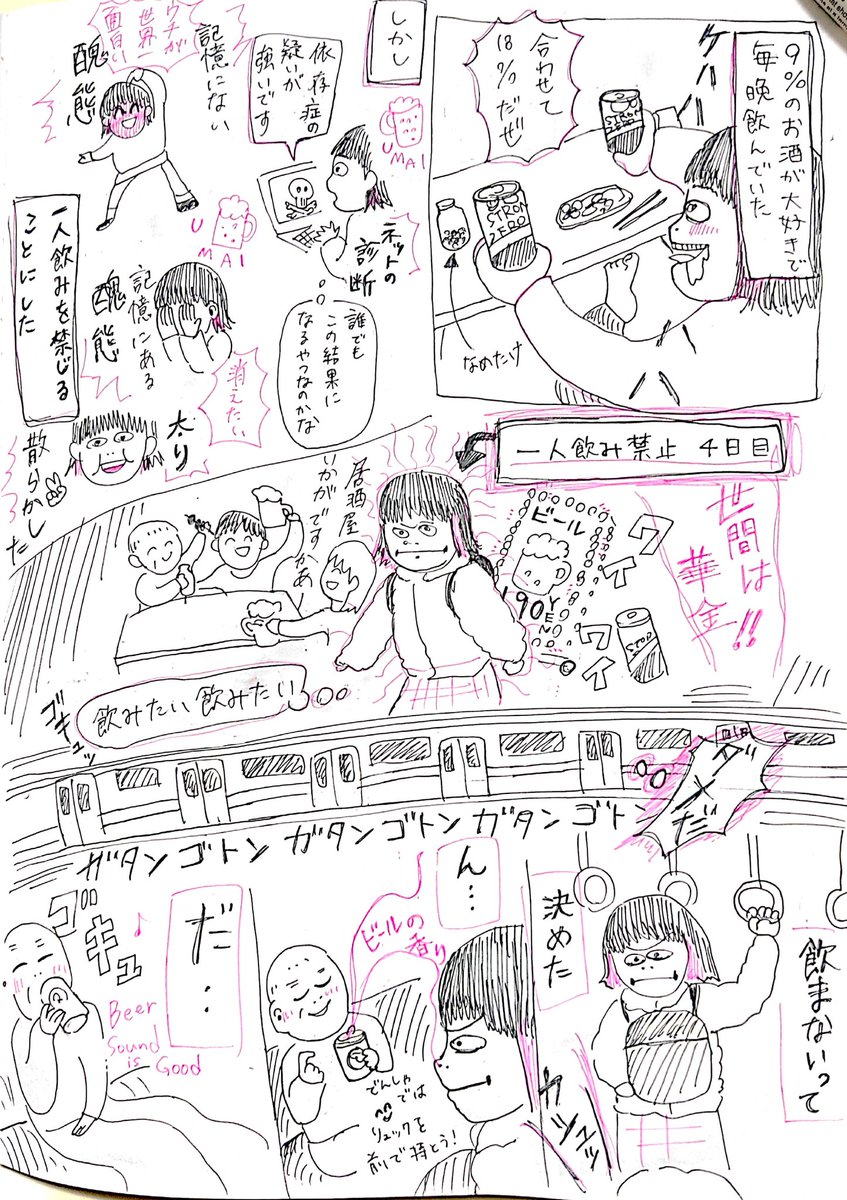 9%のお酒が大好きで
毎晩飲んでいた
合わせて
18%だぜ
STRON
ZERO
STRON
ZERO
なめたけ
しかし
依存症の
疑いが
強いです
UMAI
ネットの
診断
誰でも
この結果に
なるやつなのかな
記憶にない
醜態
ウチが
世界一
面白い
UMAI
記憶にある
醜態
消えたい
太り
散らかした
一人飲みを禁じる
ことにした
一人飲み禁止 4日目
世間は
華金!!
ワイ
ワイ
ビール
190YEN
居酒屋
いかがですかあー
飲みたい飲みたい
ゴキュッ
ダメだ
ガタンゴトンガタンゴトンガタンゴトン
飲まないって
決めた
カシュッ
ん…
ビールの
香り
でんしゃでは
リュックを
前で持とう!
だ…
ゴキュ
♪
Beer
Sound
is
Good